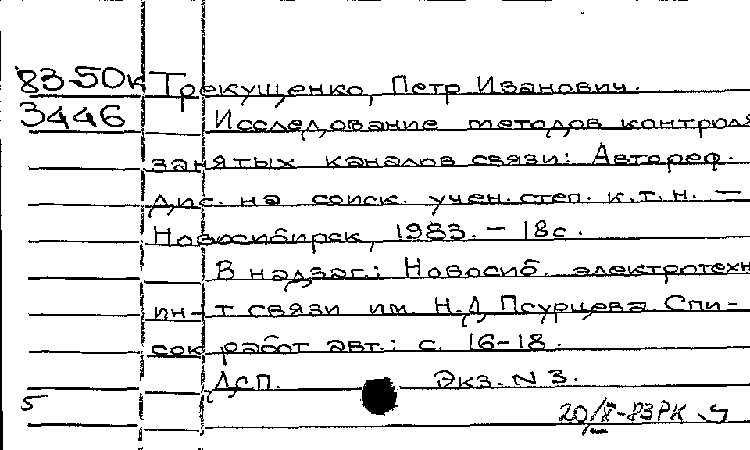 83-50к Трекущенко, Петр Иванович.
3446 Исследование методов контроля
занятых каналов связи: Автореф.
дис. на соиск. учен. степ. к.т.н. —
Новосибирск, 1983. - 18с.
В надзаг.: Новосиб. электротехн.
ин-т связи им. Н.Д. Псурцева. Спи-
сок работ авт.: с. 16-18.
ДСП. Экз. N 3.
5 20/V-83РК